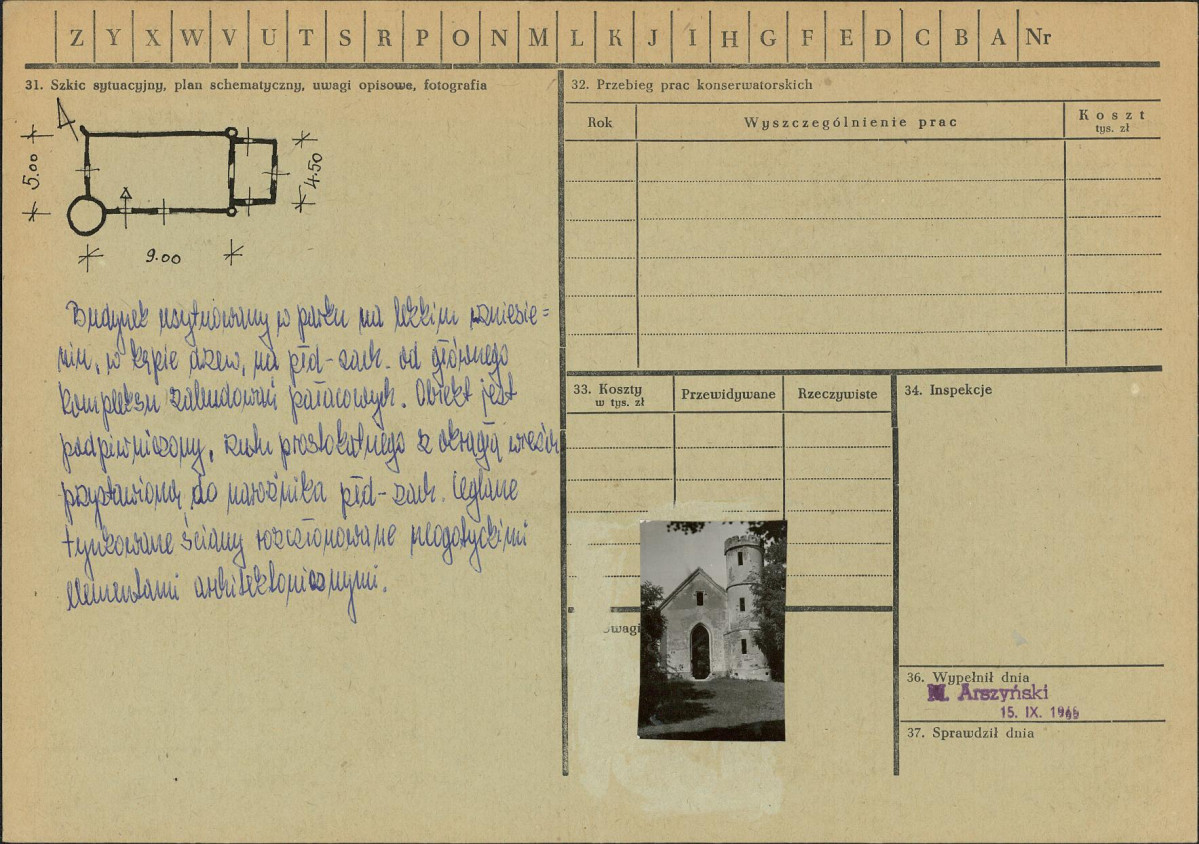 Z Y X W V U T S R P O N M L K J I H G F E D C B A Nr
31. Szkic sytuacyjny, plan schematyczny, uwagi opisowe, fotografia
5.00
4.50
9.00
Budynek usytuowany w parku na lekkim wzniesie=
niu, w kępie drzew, na płd-zach. od głównego
kompleksu zabudowań pałacowych. Obiekt jest
podpiwniczony, rzutu prostokątnego z okrągłą wieżą
przystawioną do narożnika płd-zach. Ceglane
tynkowane ściany rozczłonowane neogotyckimi
elementami architektonicznymi.
32. Przebieg prac konserwatorskich
Rok
Wyszczególnienie prac
Koszt
tys. zł
33. Koszty
w tys. zł
Przewidywane
Rzeczywiste
34. Inspekcje
Uwagi
36. Wypełnił dnia
M. Arszyński
15. IX.
37. Sprawdził dnia